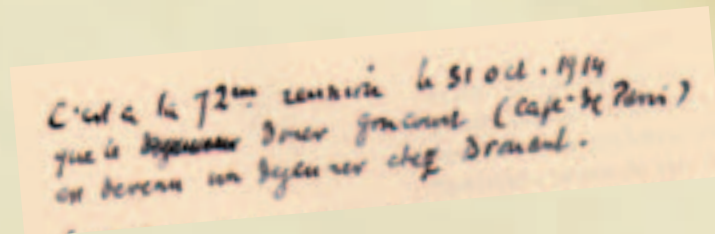 C'est a la 72me reunion le 31 oct. 1914
que le dejeuner Diner Goncourt (Café de Paris)
est devenu un dejeuner chez Drouant.